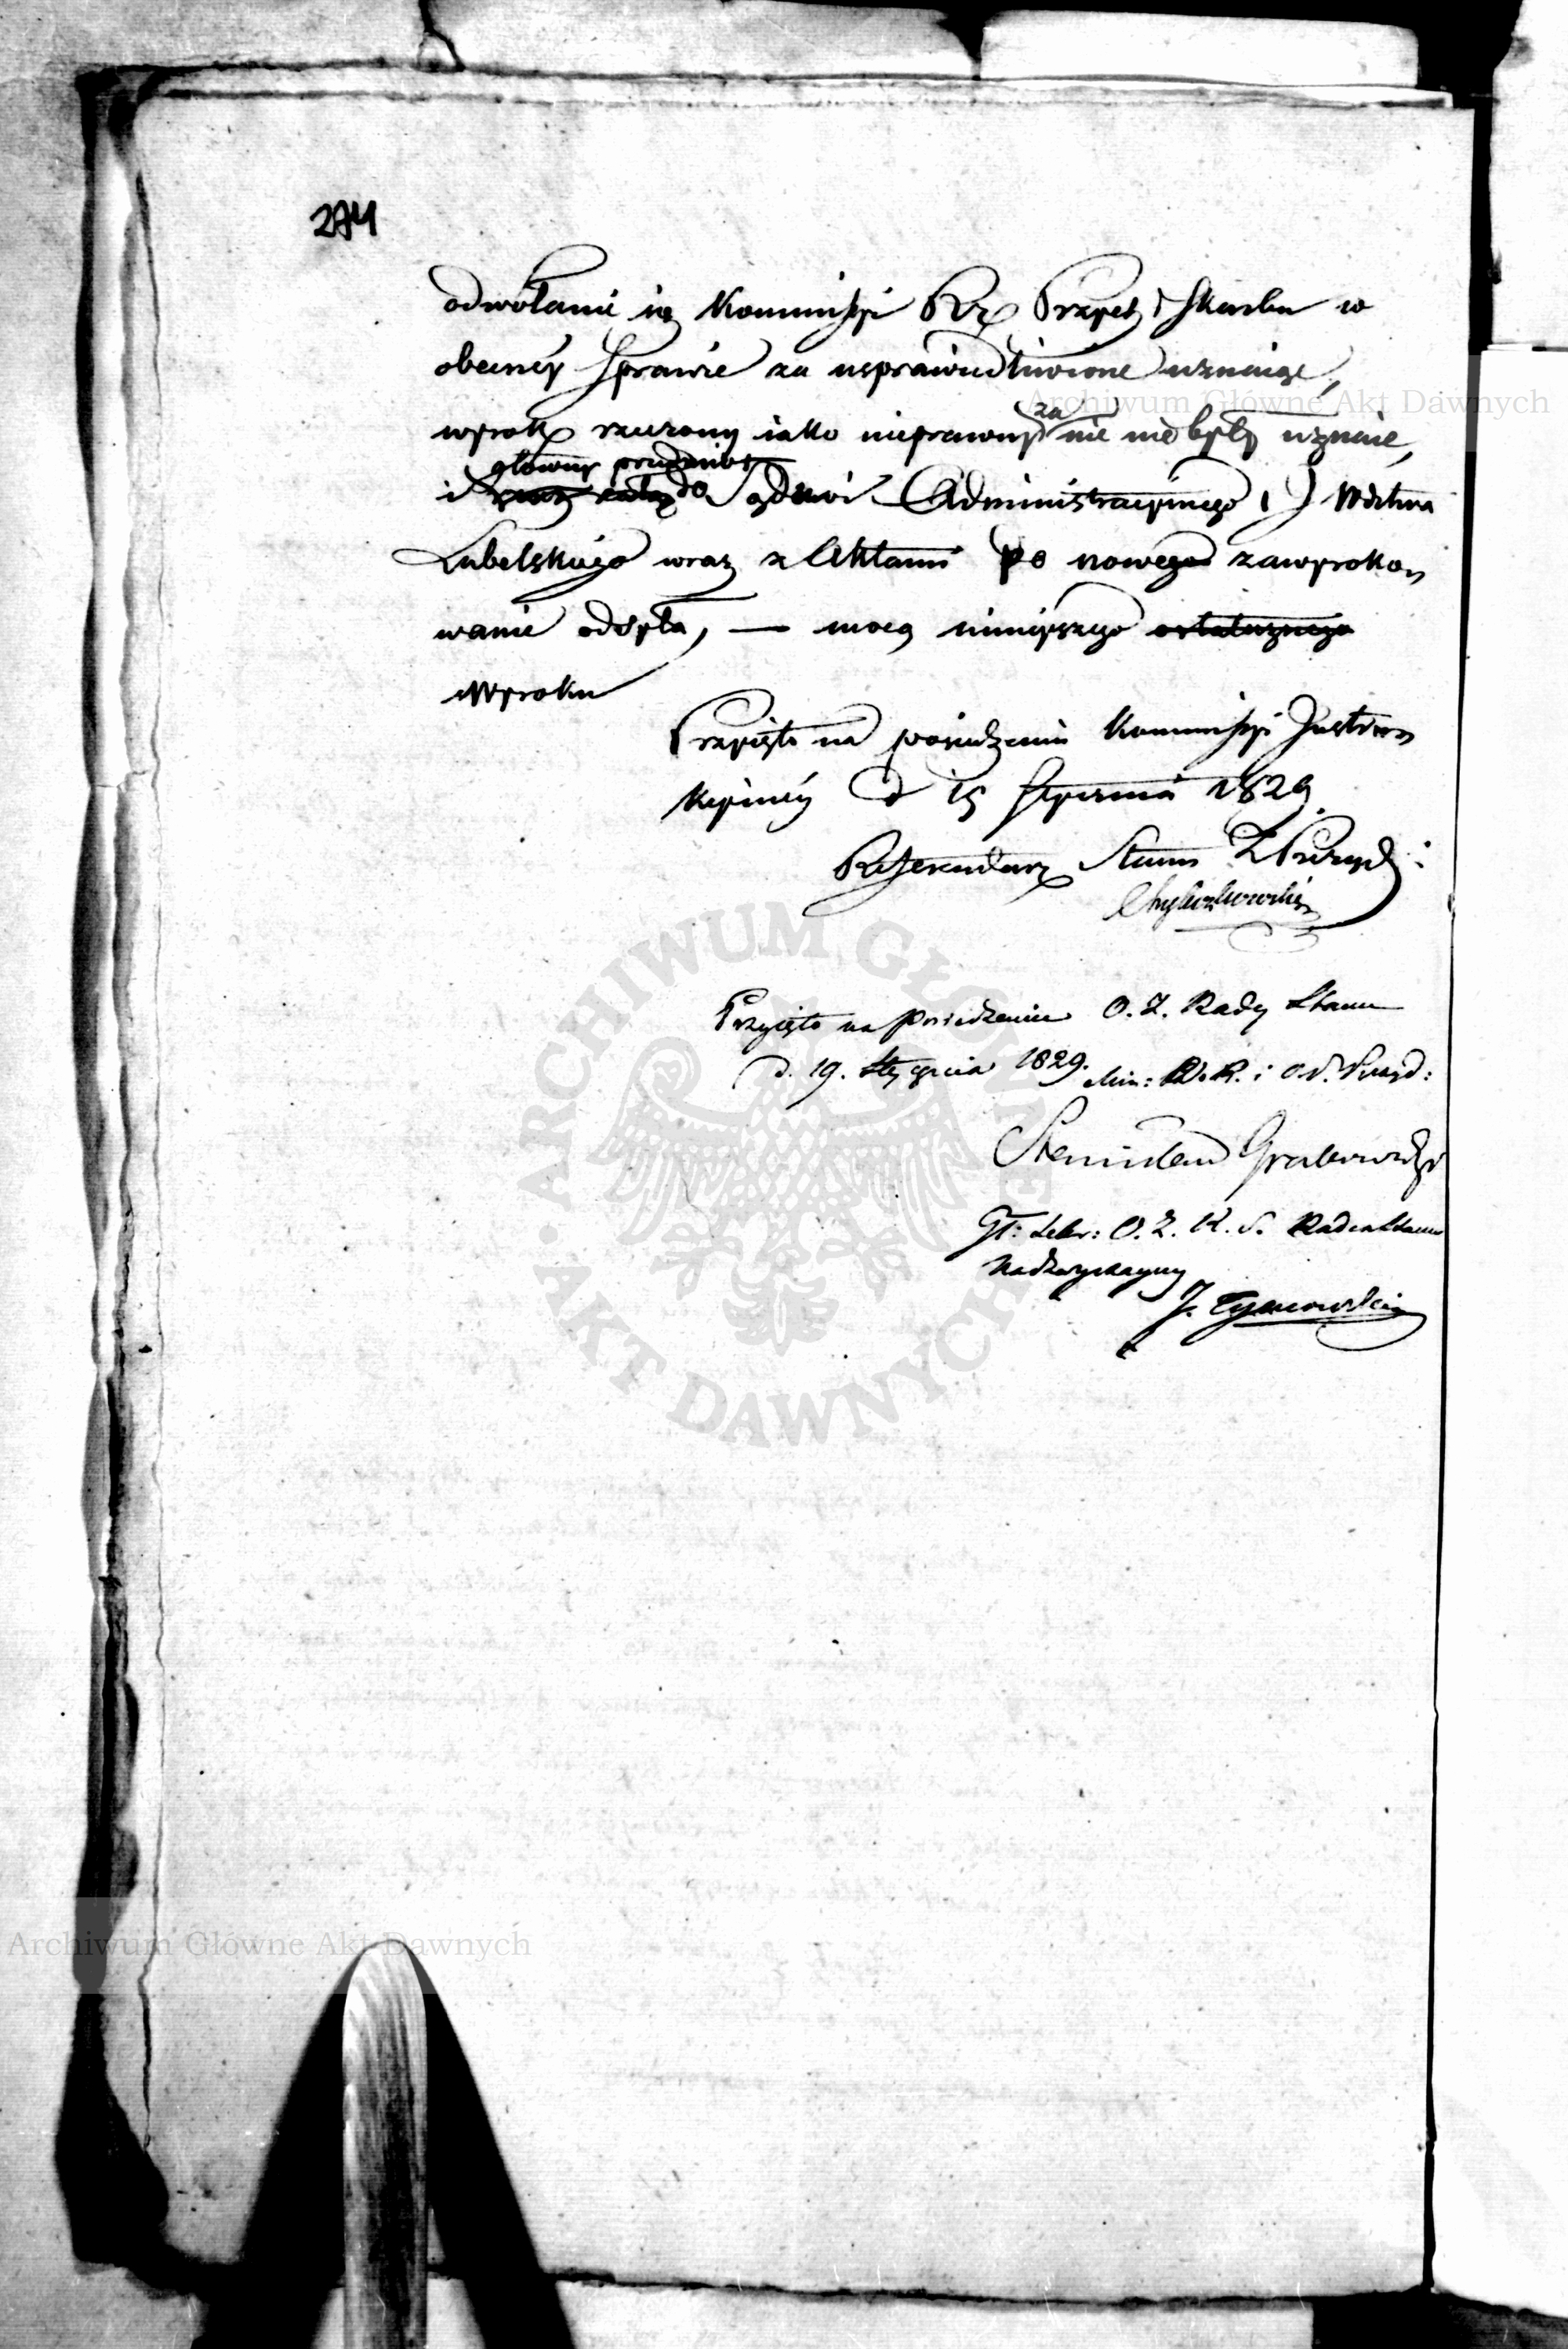 274
odwołanie się Kommissyi Rz Przych i Skarbu w
obecnéy sprawie za usprawiedliwione uznaiąc,
wyrok rzeczony iako nieprawny za nie nie były uznaie,
główny przedmiot
i do Sądowi Administracyinego Wdztwa
Lubelskiego wraz z Aktami po nowego zawyroko-
wanie odsyła, — mocą ninieyszego ostatecznego
Wyroku
Przyięto na posiedzeniu Kommissyi Instruk-
kcyinéy d 15 Stycznia 1829
Referendarz Stanu
Przyięto na posiedzeniu O. Z. Rady Stanu
d. 19. Stycznia 1829. Min: i O. P. Prezyd:
Stanisław Grabowski
Gł: Sekr: O. Z. R. S. Radca Stanu
Nadzwyczayny
J. Tymowski
Archiwum Główne Akt Dawnych
ARCHIWUM GŁÓWNE • AKT DAWNYCH •
Archiwum Główne Akt Dawnych